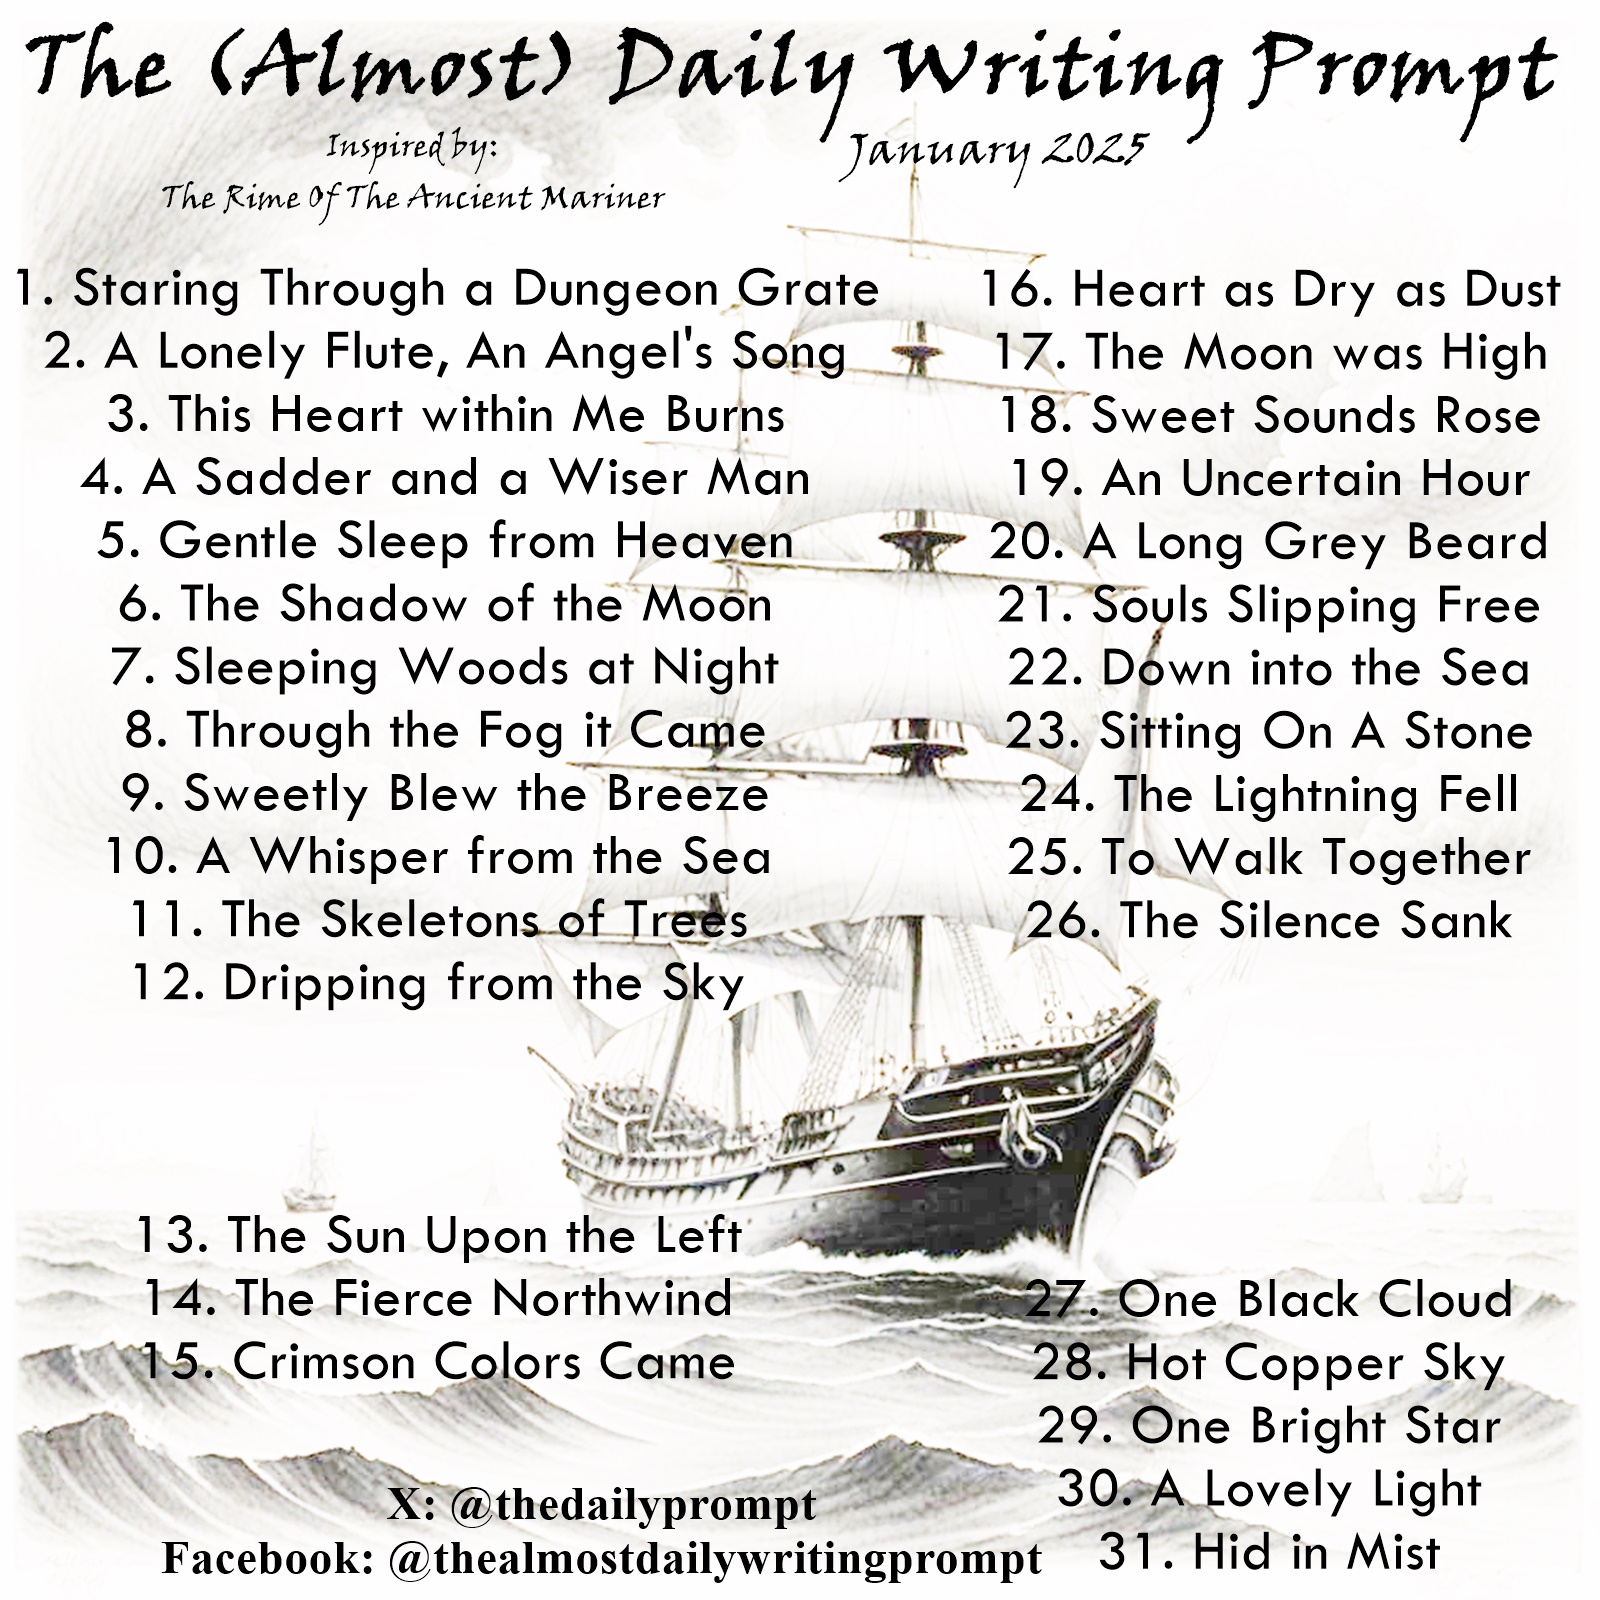 The (Almost) Daily Writing Prompt
Inspired by:
The Rime Of The Ancient Mariner
January 2025
1. Staring Through a Dungeon Grate
2. A Lonely Flute, An Angel's Song
3. This Heart within Me Burns
4. A Sadder and a Wiser Man
5. Gentle Sleep from Heaven
6. The Shadow of the Moon
7. Sleeping Woods at Night
8. Through the Fog it Came
9. Sweetly Blew the Breeze
10. A Whisper from the Sea
11. The Skeletons of Trees
12. Dripping from the Sky
13. The Sun Upon the Left
14. The Fierce Northwind
15. Crimson Colors Came
16. Heart as Dry as Dust
17. The Moon was High
18. Sweet Sounds Rose
19. An Uncertain Hour
20. A Long Grey Beard
21. Souls Slipping Free
22. Down into the Sea
23. Sitting On A Stone
24. The Lightning Fell
25. To Walk Together
26. The Silence Sank
27. One Black Cloud
28. Hot Copper Sky
29. One Bright Star
30. A Lovely Light
31. Hid in Mist
X: @thedailyprompt
Facebook: @thealmostdailywritingprompt